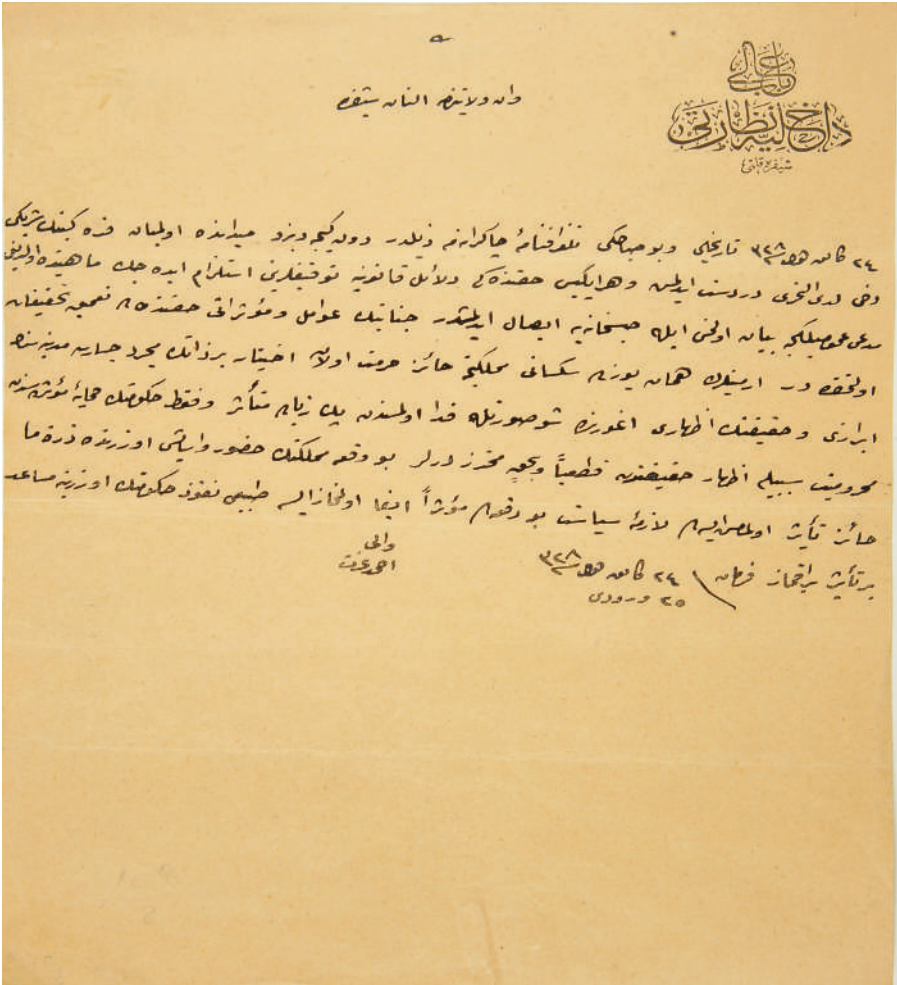 باب عالی
داخلیه نظارتی
شیفره قلمی
وان ولایتندن النان شیفره
٢٤ كانون اول ٣٢٨ تاریخلی و بو صباحكی تلغرافنامهٔ چاكرانه‌مه ذیلدر دون كیجه ویزو میدانده اولمیان قره كینك شریكی
دخی لدی التحری دردست ایدلمش و هر ایكیسی حقنده كی دلائل قانونیه توقیفلرینی استلزام ایده جك ماهیتده اولدیغی
مدعی عمومیلكجه بیان اولنمش ایله حبسخانه‌یه ایصال ایدلمشدر جنایتك عوامل و مؤثراتی حقنده تعمیق تحقیقات
اولنمقده در ارمنیلرك همان یوزده سكسانی مملكتجه حائز حرمت اولان اختیار بر ذاتك مجرد جسارت مدنیه سنی
ابرازی و حقیقتك اظهاری اغورنده شو صورتله فدا اولمسندن پك زیاده متأثر و فقط حكومتك حمایهٔ مؤثره سندن
محرومیت سببیله اظهار حقیقتدن قطعیاً وبحق محترز درلر بو وقعه مملكتك حضور و آسایشی اوزرنده ذرة ما
حائز تأثیر اولمامش ایسه ده لازمهٔ سیاست بو دفعه ده مؤثراً ایفا اولنماز ایسه طبیعی نفوذ حكومتك اوزرینه مساعد
بر تأثیر براقماز فرمان ٢٤ كانون اول ٣٢٨
والی
احمد عزت
٢٥ ورودی